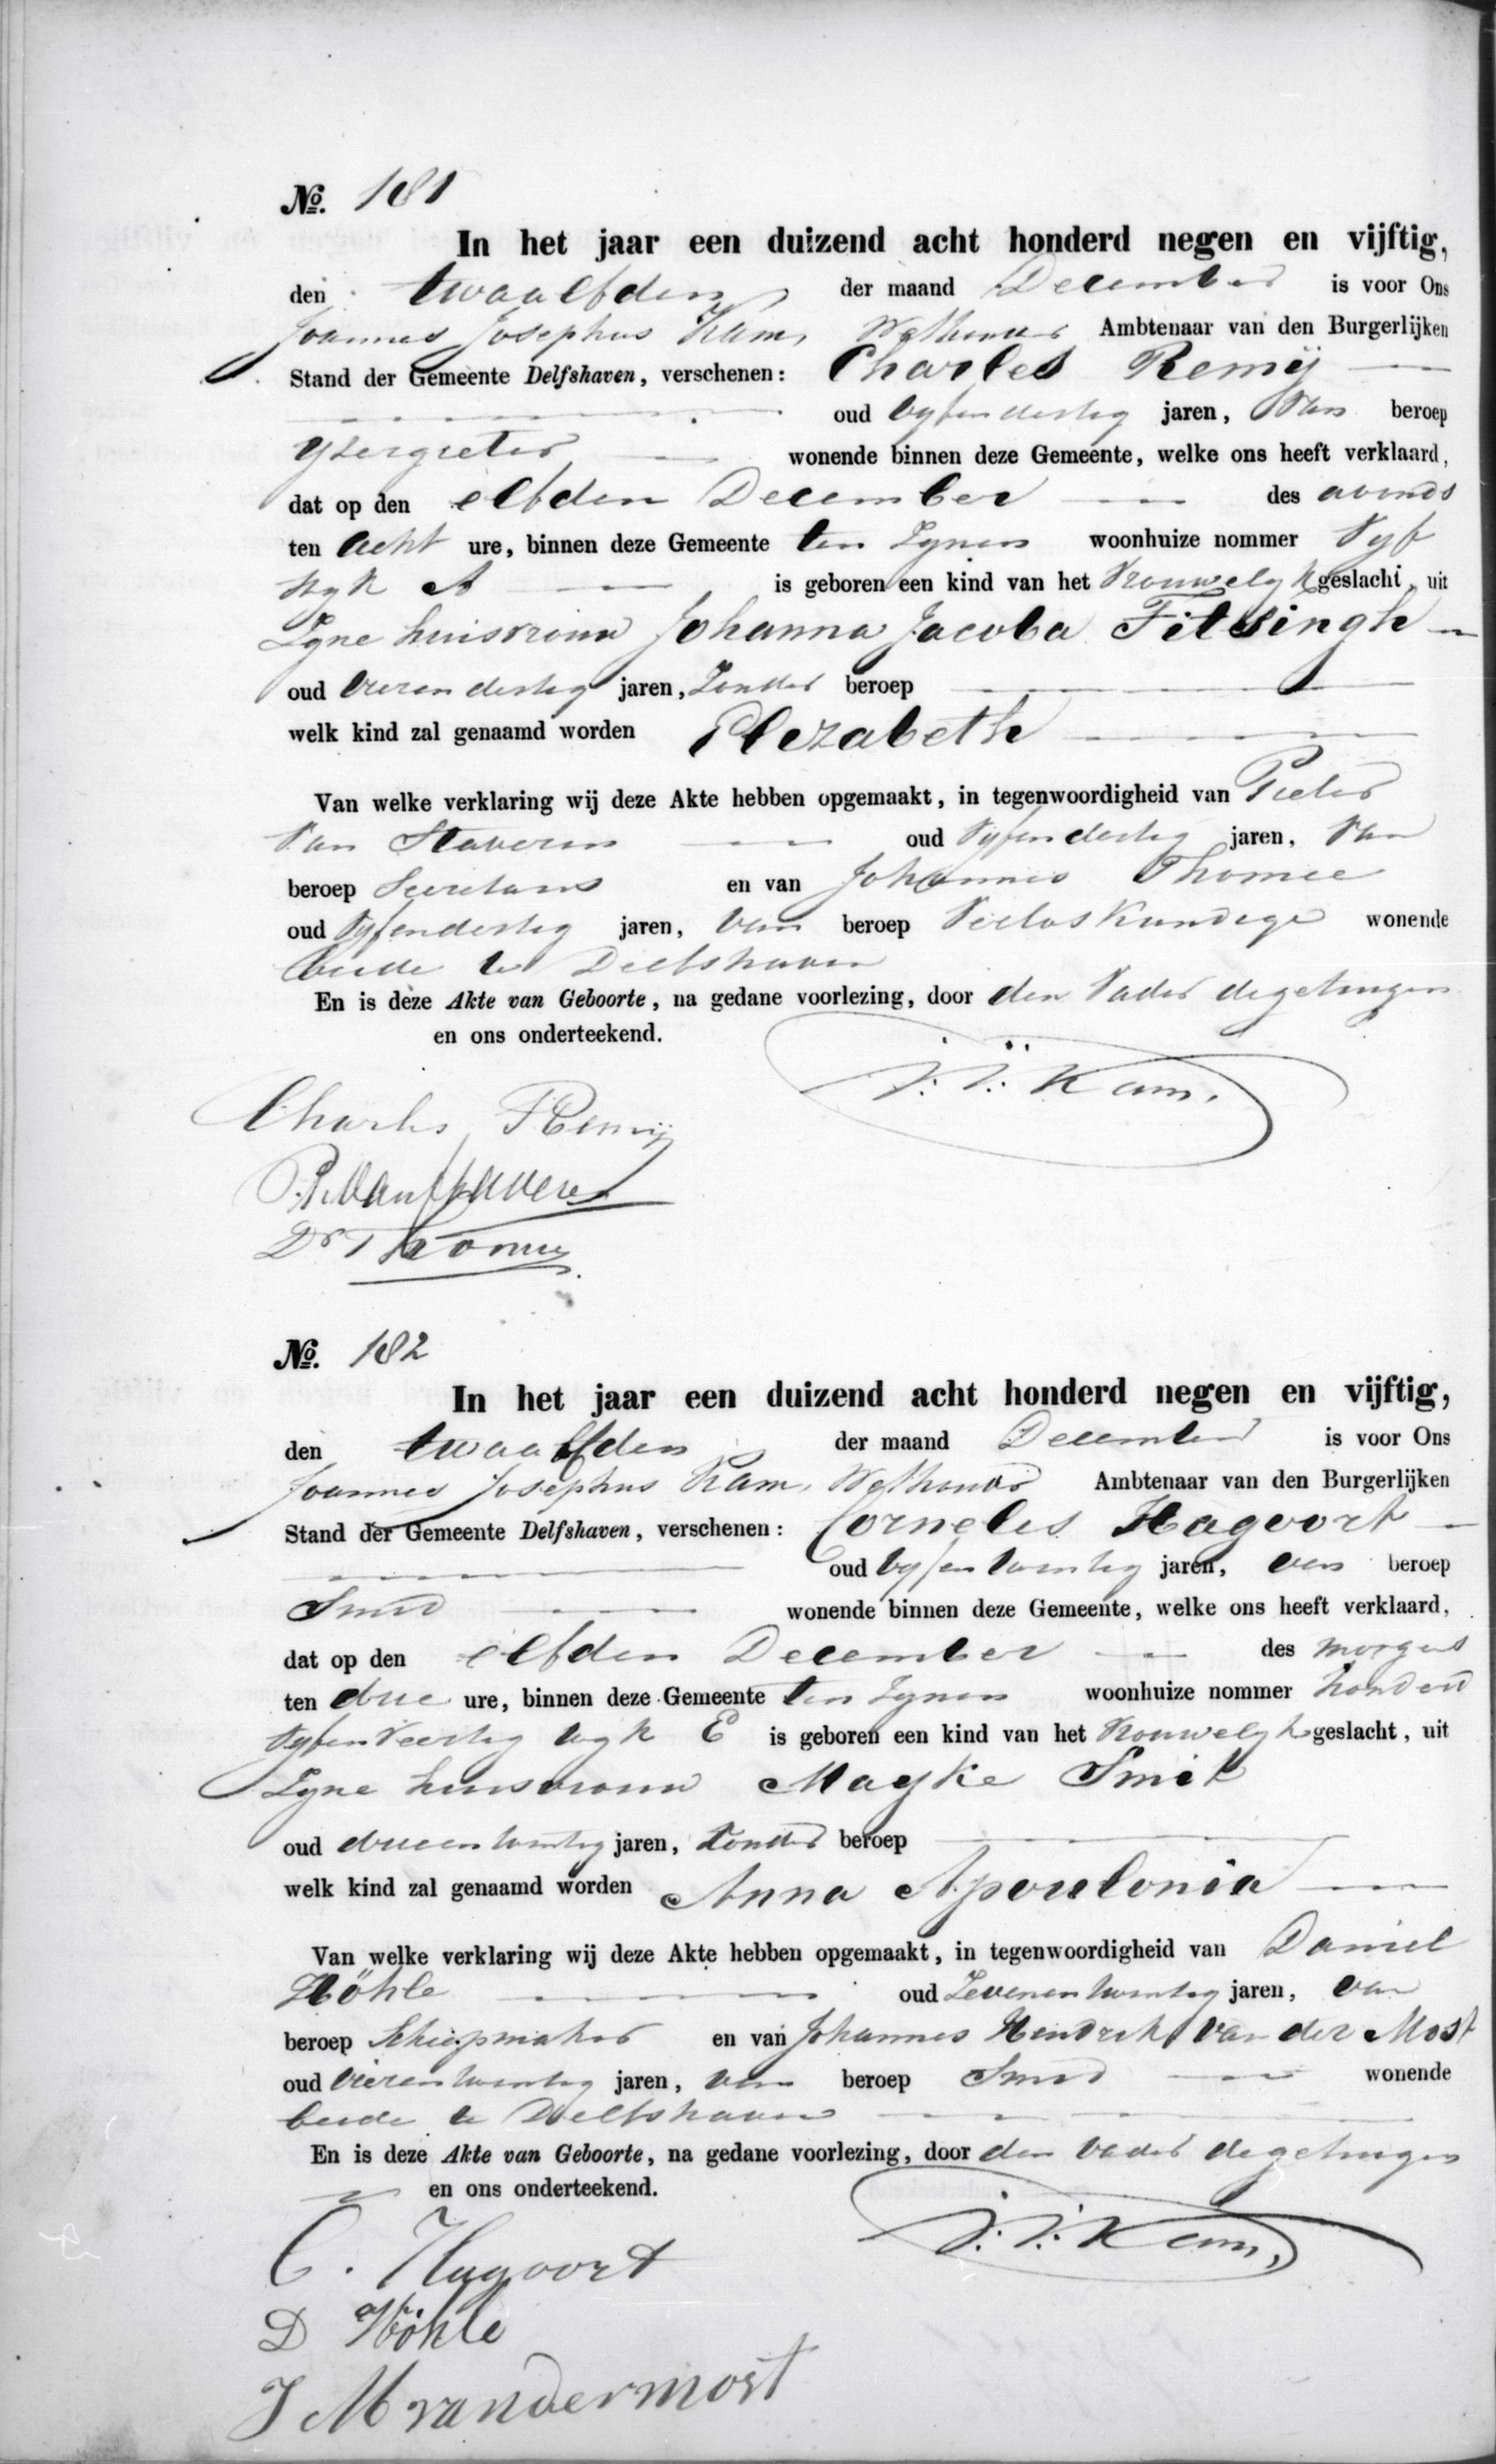 No. 181
In het jaar een duizend acht honderd negen en vijftig,
den twaalfden der maand December is voor Ons
Joannes Josephus Kam, Wethouder Ambtenaar van den Burgerlijken
Stand der Gemeente Delfshaven, verschenen: Charles Remij
oud vyfendertig jaren, van beroep
Yzergieter wonende binnen deze Gemeente, welke ons heeft verklaard,
dat op den elfden December des avonds
ten acht ure, binnen deze Gemeente ten zynen woonhuize nommer Vyf
wyk A is geboren een kind van het Vrouwelyk geslacht, uit
Zyne huisvrouw Johanna Jacoba Fitsingh
oud vierendertig jaren, Zonder beroep
welk kind zal genaamd worden Elezabeth
Van welke verklaring wij deze Akte hebben opgemaakt, in tegenwoordigheid van Pieter
Van Staveren oud Vyfendertig jaren, Van
beroep Secretaris en van Johannis Thomee
oud Vyfendertig jaren, van beroep Verloskundige wonende
beide te Delfshaven
En is deze Akte van Geboorte, na gedane voorlezing, door den Vader de getuigen
en ons onderteekend.
J. J. Kam.
Charles Remij
P. Van Staveren
Dr Thomee
No. 182
In het jaar een duizend acht honderd negen en vijftig,
den twaalfden der maand December is voor Ons
Joannes Josephus Kam, Wethouder Ambtenaar van den Burgerlijken
Stand der Gemeente Delfshaven, verschenen: Cornelis Hagoort
oud vyfentwintig jaren, van beroep
Smid wonende binnen deze Gemeente, welke ons heeft verklaard,
dat op den elfden December des morgens
ten drie ure, binnen deze Gemeente ten zynen woonhuize nommer honderd
Vyfenveertig wyk E is geboren een kind van het Vrouwelyk geslacht, uit
Zyne huisvrouw Mayke Smit
oud drieentwintig jaren, Zonder beroep
welk kind zal genaamd worden Anna Apoulonia
Van welke verklaring wij deze Akte hebben opgemaakt, in tegenwoordigheid van Daniel
Höhle oud Zevenentwintig jaren, van
beroep Scheepmaker en van Johannes Hendrik van der Most
oud vierentwintig jaren, van beroep Smid wonende
beide te Delfshaven
En is deze Akte van Geboorte, na gedane voorlezing, door den vader de getuigen
en ons onderteekend.
J. J. Kam,
C. Hagoort
D Höhle
J M van der most